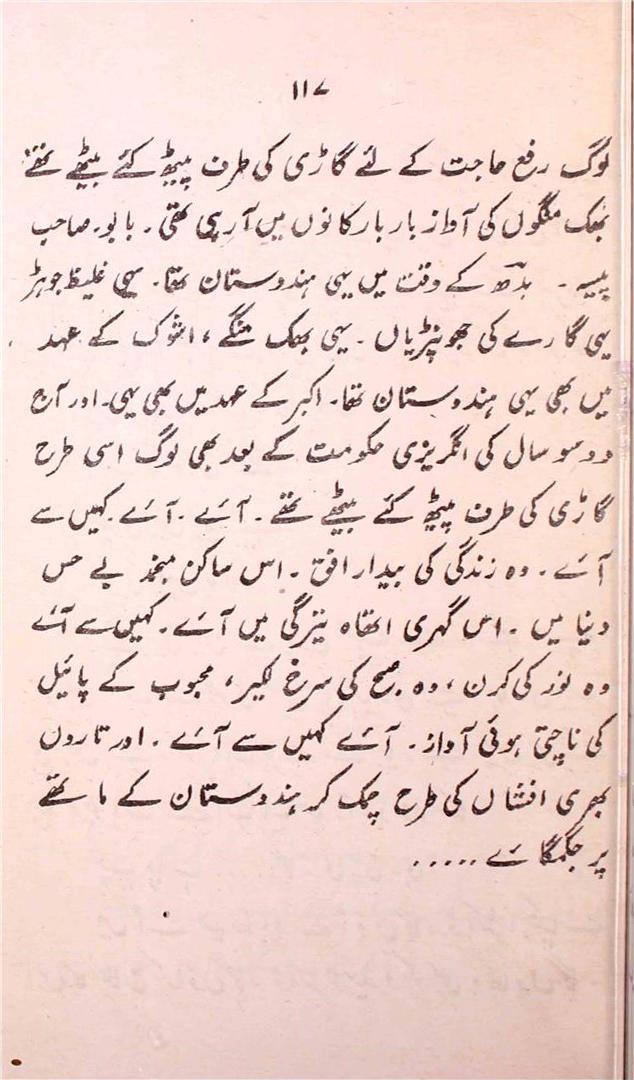 ۱۱۷
لوگ رفع حاجت کے لئے گاڑی کی طرف پیٹھ کئے بیٹھے تھے
بھک منگوں کی آواز بار بار کانوں میں آرہی تھی۔ بابو۔ صاحب
پیسہ ۔ بدھ کے وقت میں یہی ہندوستان تھا۔ یہی غلیظ جوہڑ
یہی گارے کی جھونپڑیاں ۔ یہی بھک منگے ، اشوک کے عہد
میں بھی یہی ہندوستان تھا۔ اکبر کے عہد میں بھی یہی۔ اور آج
دو سو سال کی انگریزی حکومت کے بعد بھی لوگ اسی طرح
گاڑی کی طرف پیٹھ کئے بیٹھے تھے ۔ آئے ۔ آئے ۔ کہیں سے
آئے ۔ وہ زندگی کی بیدار افق ۔ اس ساکن منجمد بے حس
دنیا میں ۔ اس گہری اتھاہ تیرگی میں آئے ۔ کہیں سے آئے
وہ نور کی کرن ، وہ صبح کی سرخ لکیر ، محبوب کے پائیل
کی ناچتی ہوئی آواز ۔ آئے کہیں سے آئے ۔ اور تاروں
بھری افشاں کی طرح چمک کر ہندوستان کے ماتھے
پر جگمگائے .....